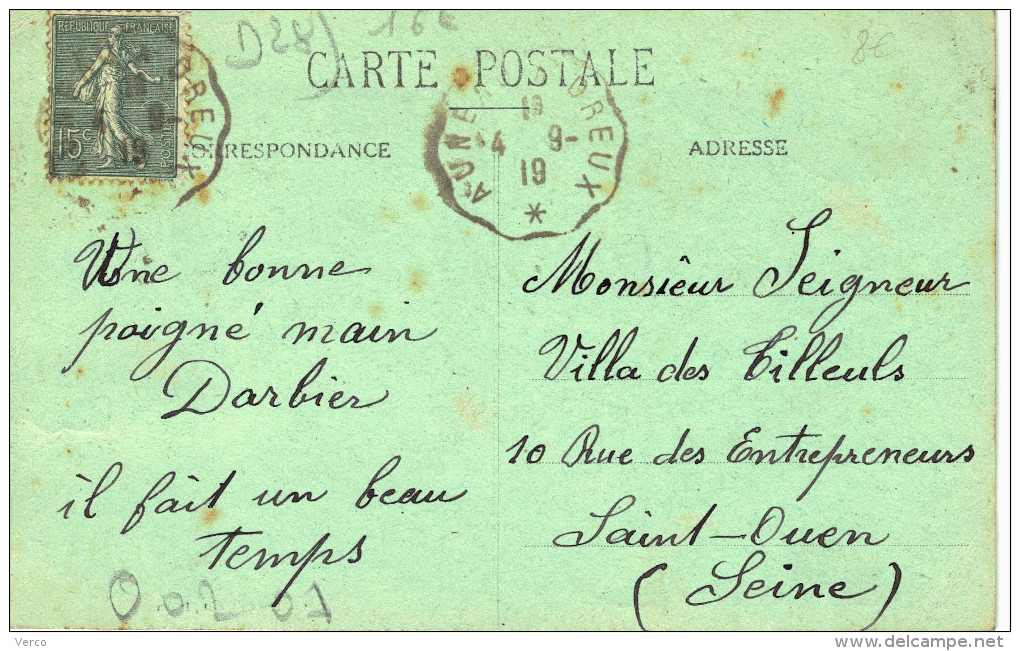 REPUBLIQUE FRANÇAISE
15c POSTES
D28) 16€
8€
CARTE POSTALE
CORRESPONDANCE
ADRESSE
DREUX
DREUX
19
4 9-
19
*
Une bonne
poigné main
Darbier
il fait un beau
temps
Monsieur Seigneur
Villa des Tilleuls
10 Rue des Entrepreneurs
Saint-Ouen
(Seine)
Verco
www.delcampe.net